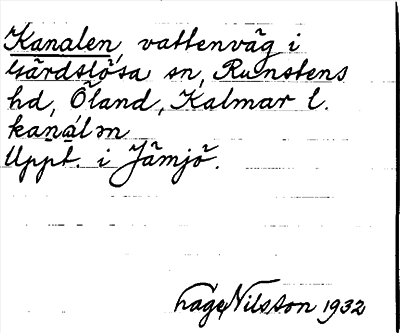 Kanalen, vattenväg i
Gärdslösa sn, Runstens
hd, Öland, Kalmar l.
kanálən
Uppt. i Jämjö.
Hage Nilsson 1932